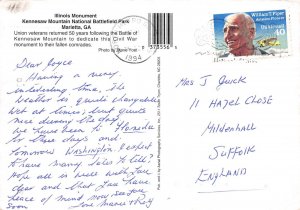 Illinois Monument
Kennesaw Mountain National Battlefield Park
Marietta, GA
Union veterans returned 50 years following the Battle of
Kennesaw Mountain to dedicate this Civil War
monument to their fallen comrades.
Photo by Steve Post
1994
William T. Piper
Aviation Pioneer
USAirmail
40
Dear Joyce
Having a very
interesting time, the
weather is quite changeable
wet at times, but quite
nice during the day
we have been to Florida
for three days and
tomorrow Washington. Expect
to have many tales to tell?
Hope all is well with you
dear and that you have
peace of mind now
soon love
Mrs J Quick
11 Hazel Close
Mildenhall
Suffolk
England